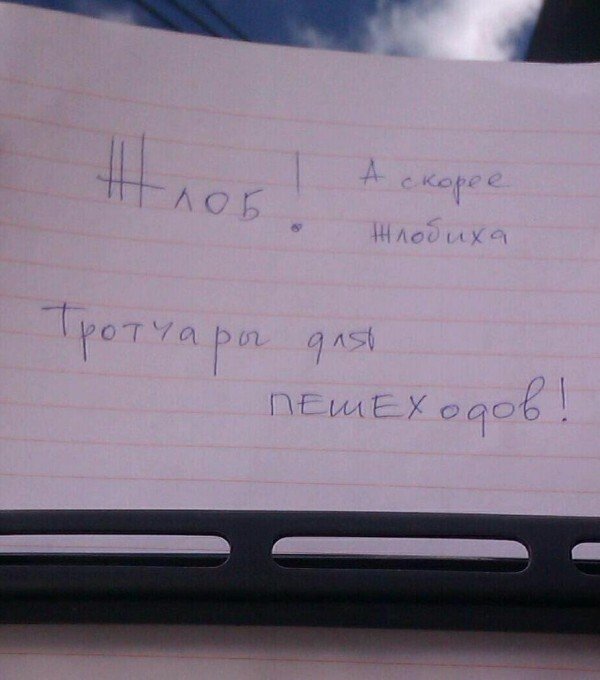 Жлоб! А скорее
жлобиха
Тротуары для
пешеходов!